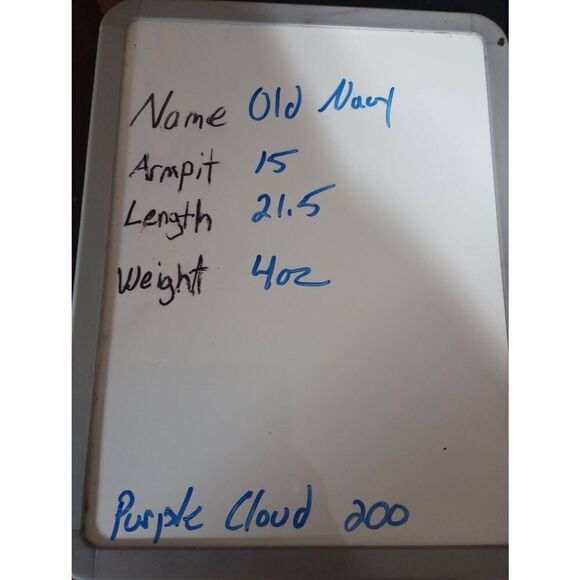 Name Old Navy
Armpit 15
Length 21.5
Weight 4oz
Purple Cloud 200